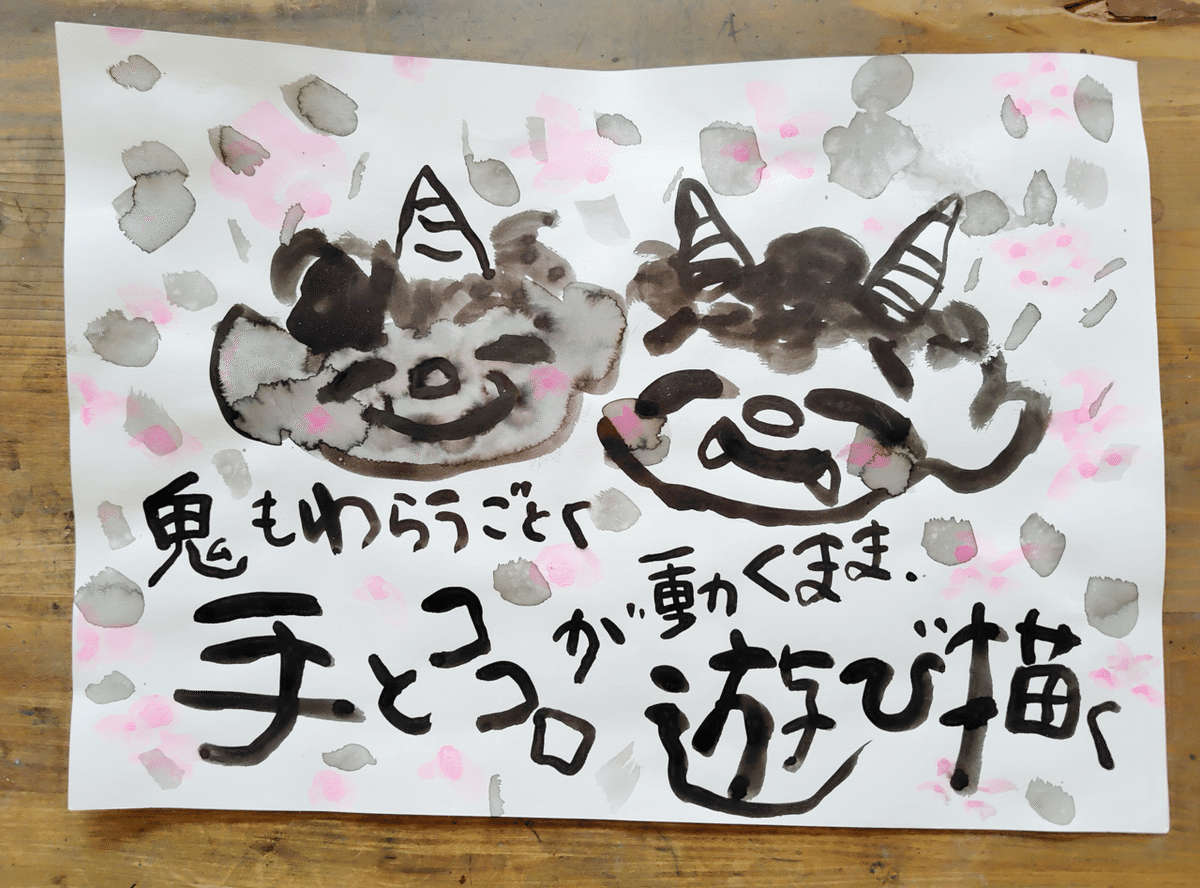 鬼もわらうごとく
手とココロが動くまま.
遊び描く